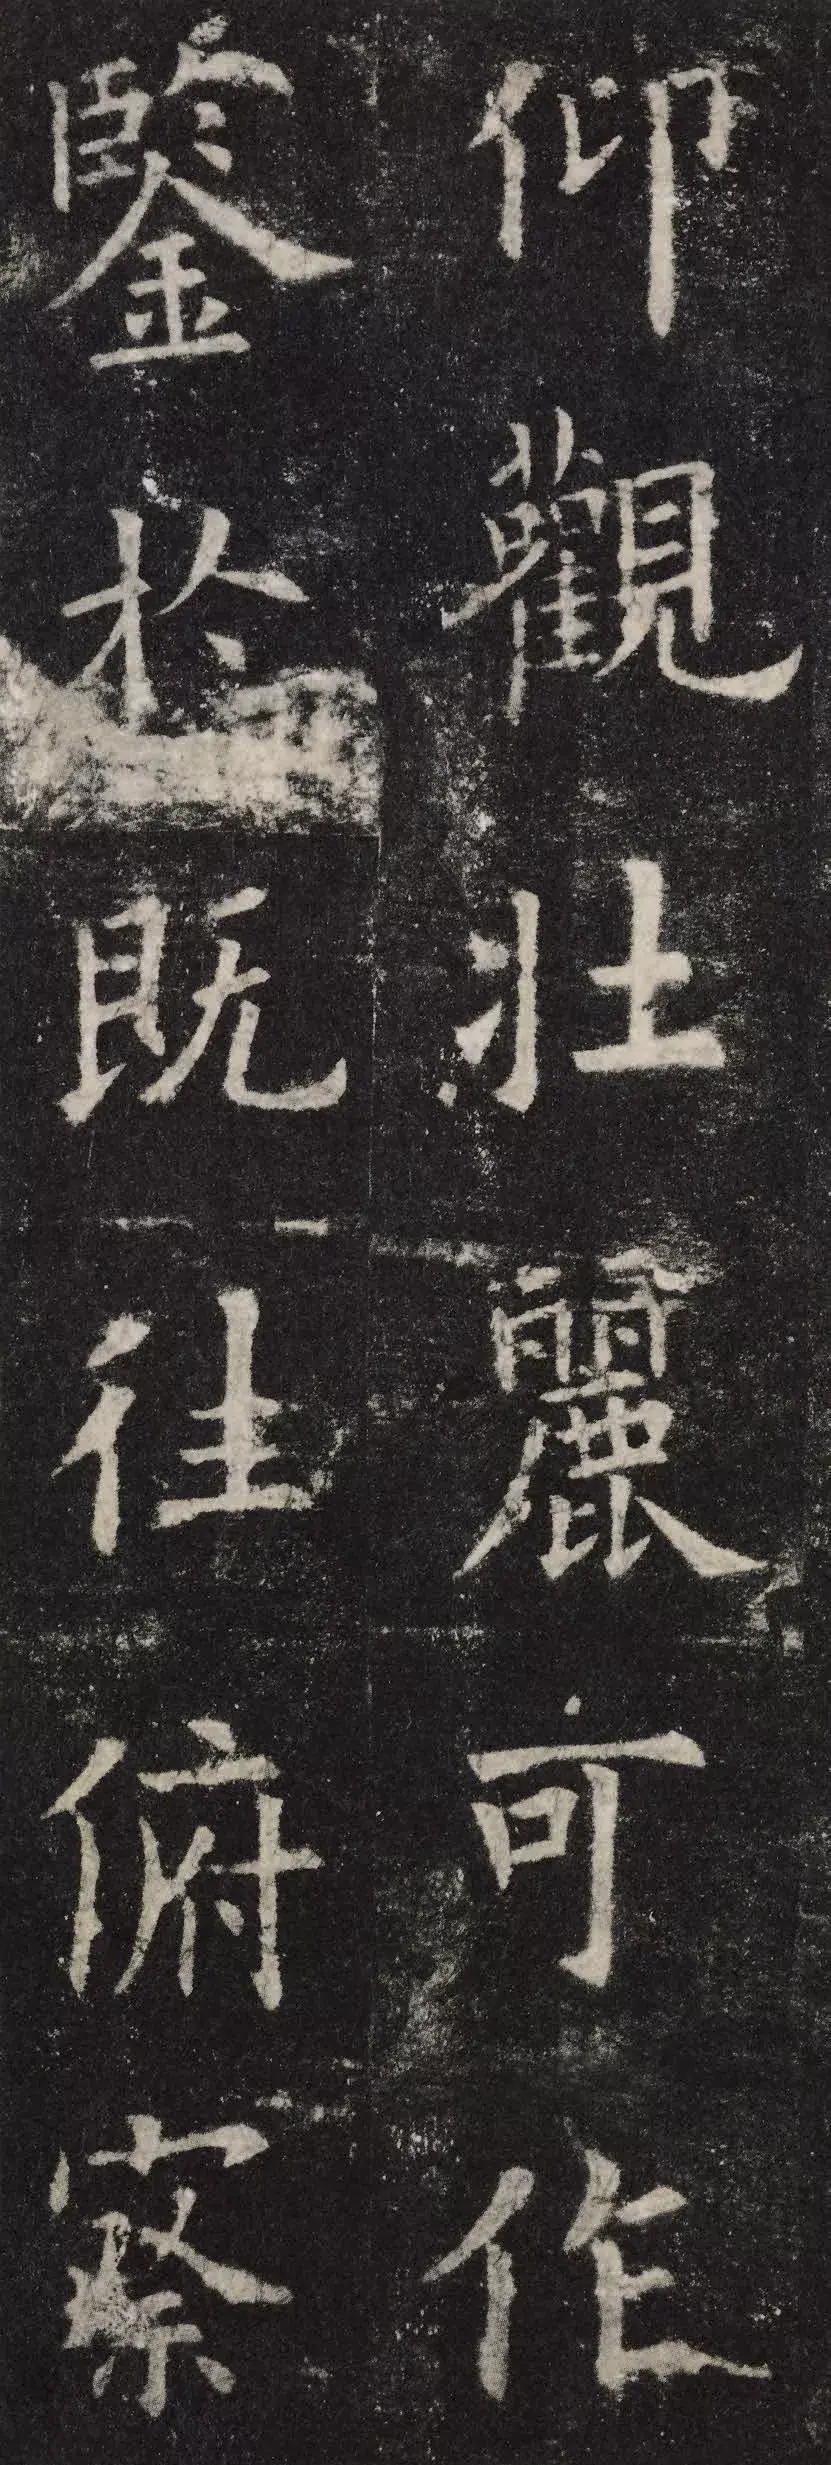 仰觀壯麗可作
鍳於既往俯察